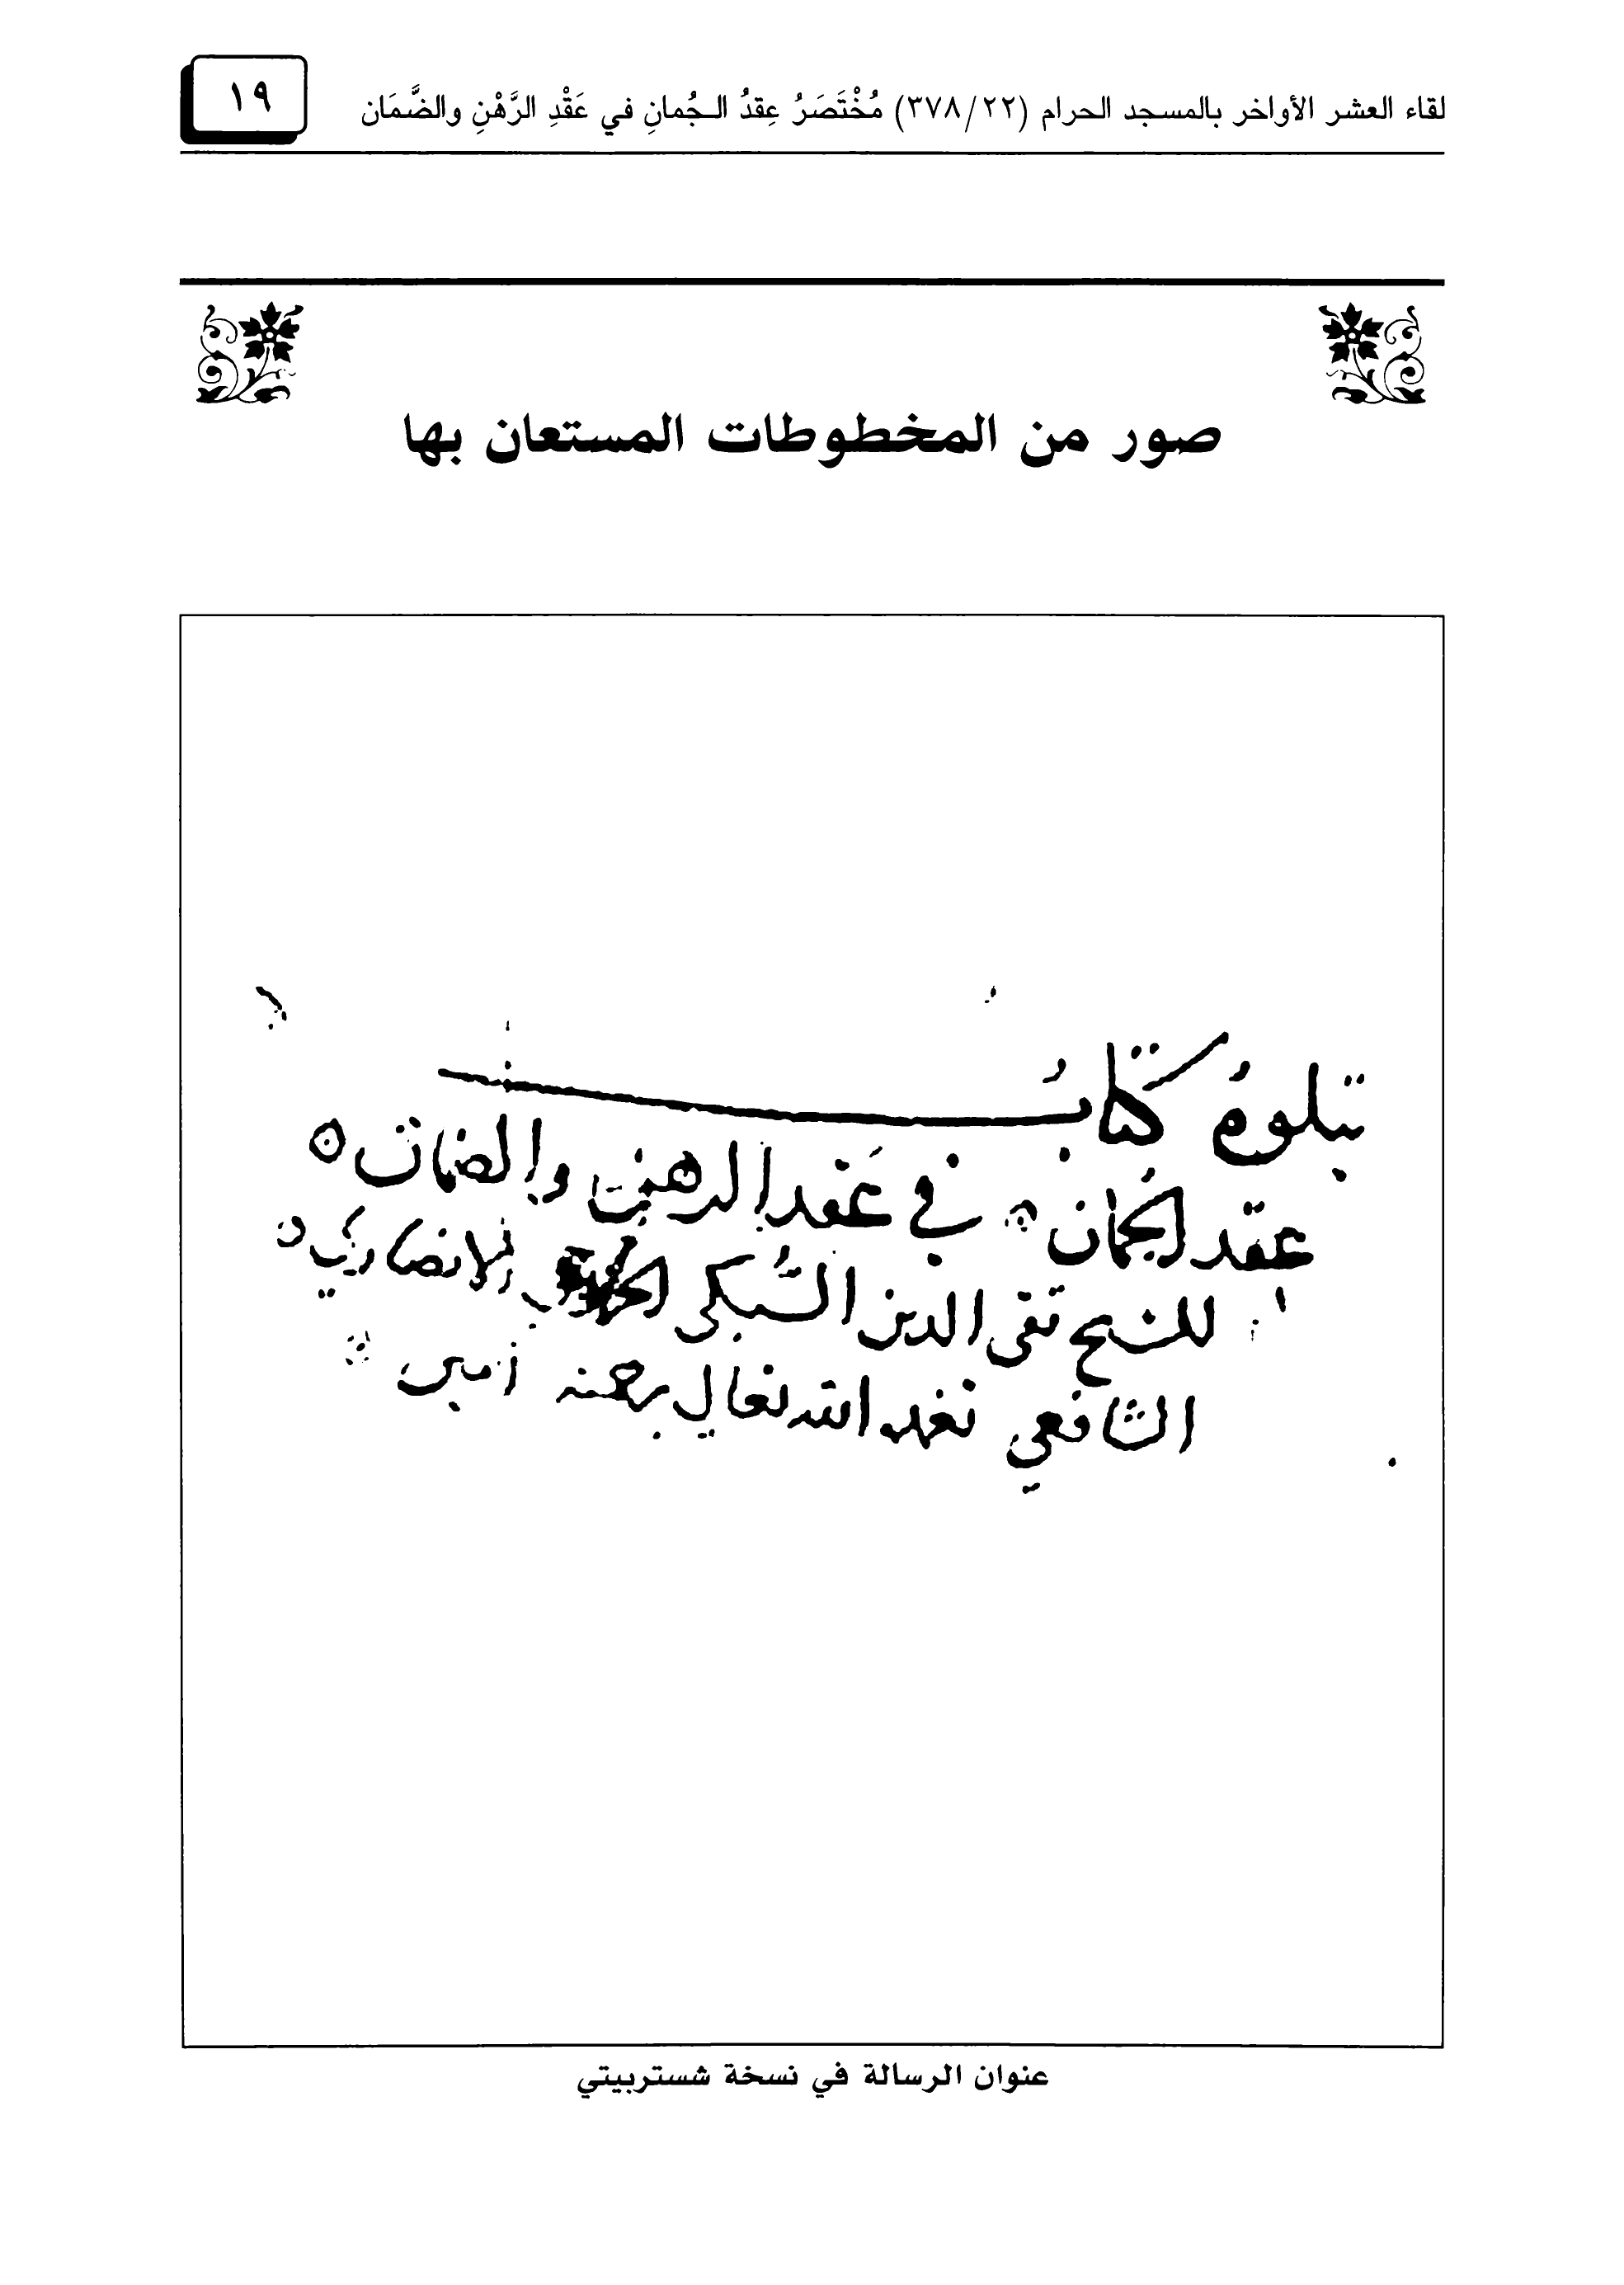 لقاء العشر الأواخر بالمسجد الحرام (٣٧٨/٢٢) مُخْتَصَرُ عِقدُ الـجُمانِ في عَقْدِ الرَّهْنِ والضَّمَان
١٩
صور من المخطوطات المستعان بها
يتلوهُ كتابُ
عقد الجمان في عَقد الرهن والضمان
للشيخ تقي الدين السُّبكي الأنصاري
الشافعي تغمده الله تعالى برحمته آمين
عنوان الرسالة في نسخة شستربيتي